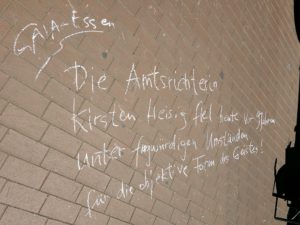 GAIA-Essen
Die Amtsrichterin
Kirsten Heisig fiel heute vor 9 Jahren
unter fragwürdigen Umständen
für die objektive Form des Geistes!